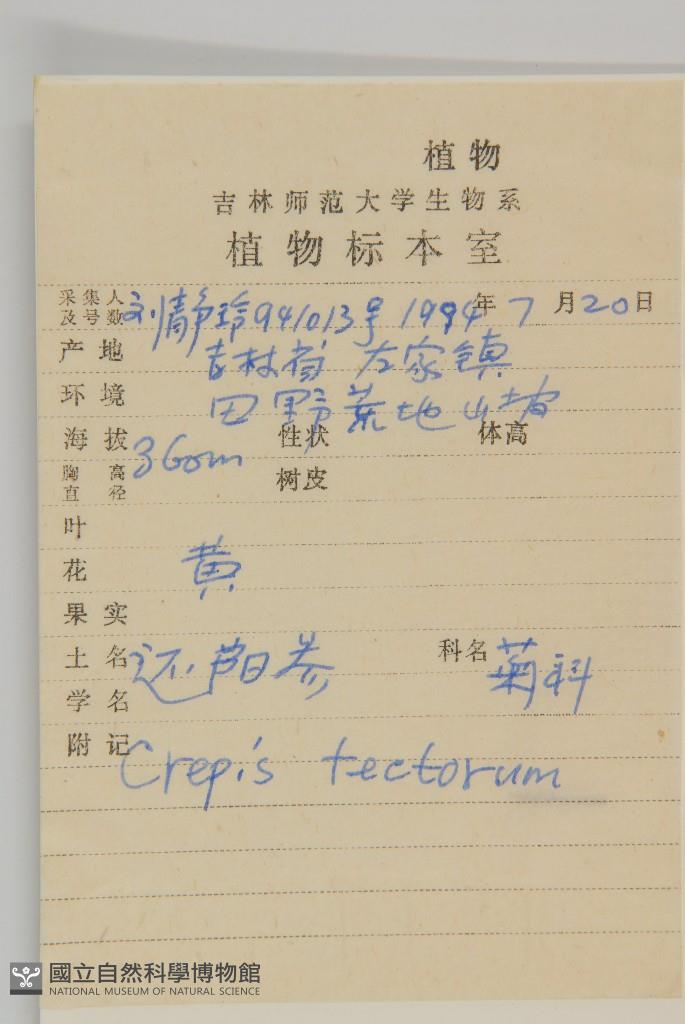 植物
吉林师范大学生物系
植物标本室
采集人及号数 刘静玲 941013号 1994年7月20日
产地 吉林省 左家镇
环境 田野荒地山坡
海拔 360m 性状 体高
胸高直径 树皮
叶
花 黄
果实
土名 还阳参 科名 菊科
学名
附记 Crepis tectorum
國立自然科學博物館
NATIONAL MUSEUM OF NATURAL SCIENCE